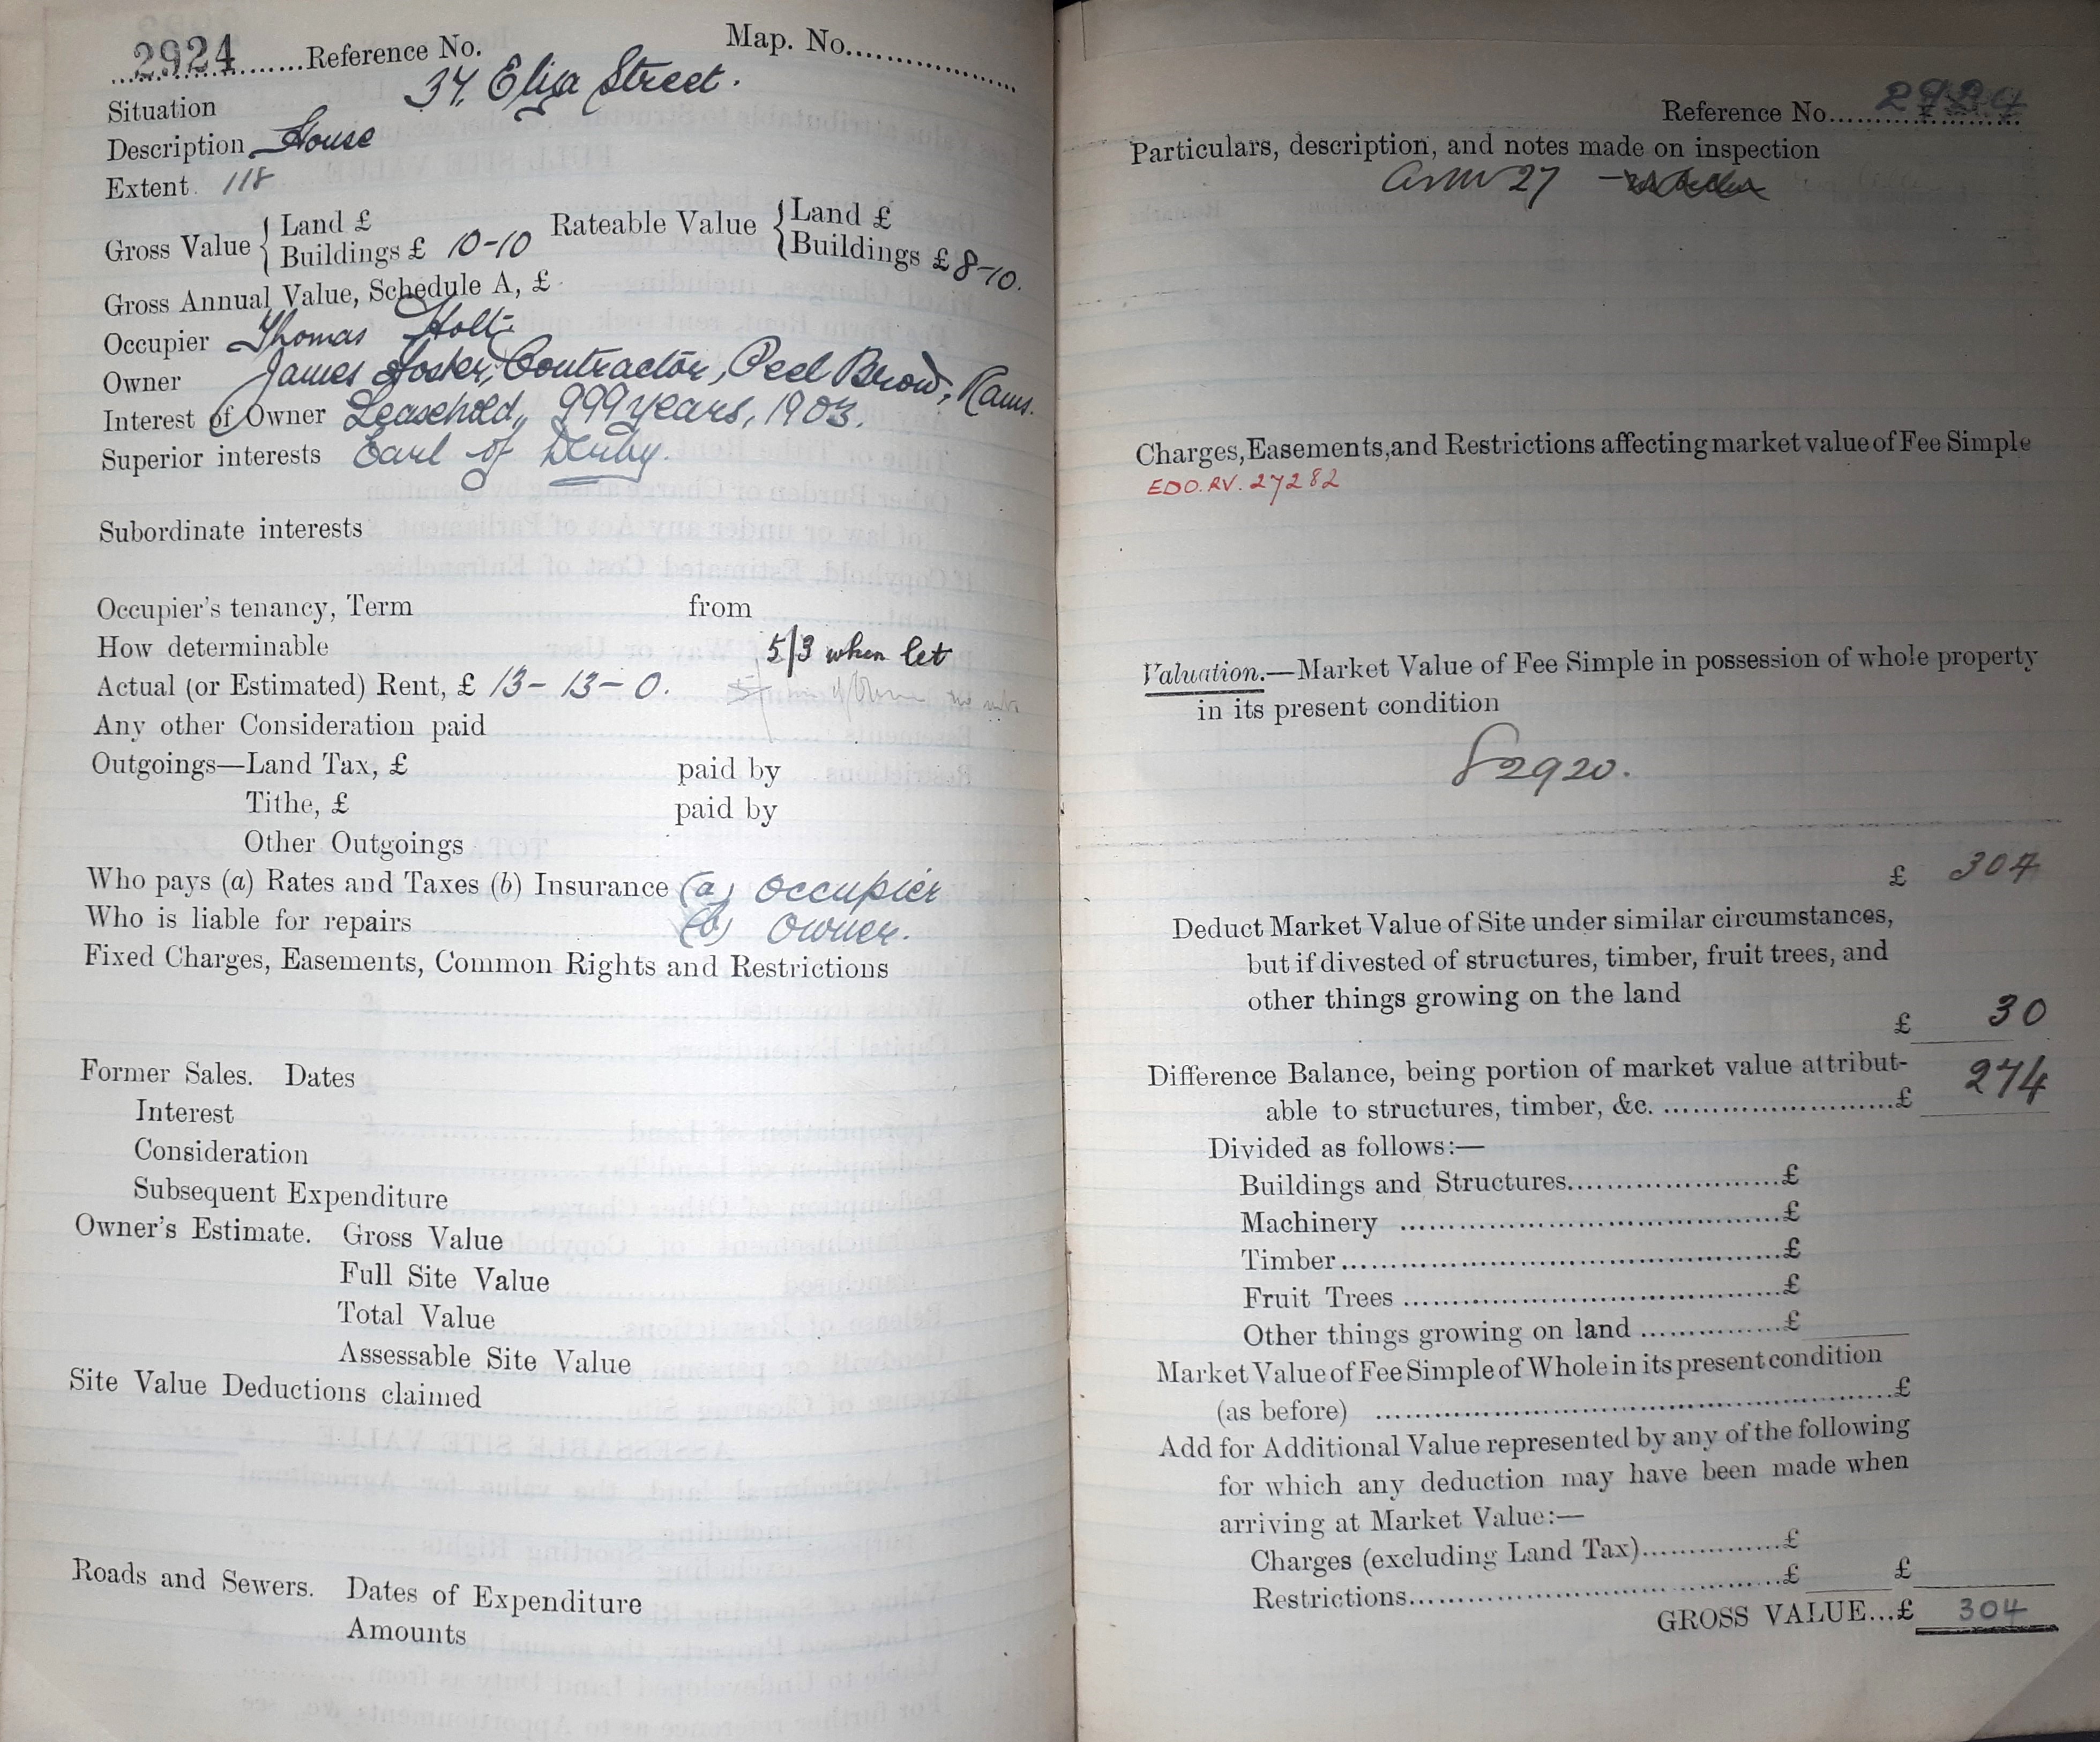 2924 Reference No. Map. No.
Situation 34, Eliza Street.
Description House
Extent 118
Gross Value { Land £
Buildings £ 10-10
Rateable Value { Land £
Buildings £ 8-10.
Gross Annual Value, Schedule A, £
Occupier Thomas Holt
Owner James Foster, Contractor, Peel Brow, Rams.
Interest of Owner Leasehold, 999 years, 1903.
Superior interests Earl of Derby.
Subordinate interests
Occupier's tenancy, Term from
How determinable 5/3 when let
Actual (or Estimated) Rent, £ 13-13-0.
Any other Consideration paid
Outgoings—Land Tax, £ paid by
Tithe, £ paid by
Other Outgoings
Who pays (a) Rates and Taxes (b) Insurance (a) occupier
Who is liable for repairs (b) owner.
Fixed Charges, Easements, Common Rights and Restrictions
Former Sales. Dates
Interest
Consideration
Subsequent Expenditure
Owner's Estimate. Gross Value
Full Site Value
Total Value
Assessable Site Value
Site Value Deductions claimed
Roads and Sewers. Dates of Expenditure
Amounts
Reference No. 2924
Particulars, description, and notes made on inspection
27
Charges, Easements, and Restrictions affecting market value of Fee Simple
EDO. RV. 27282
Valuation.—Market Value of Fee Simple in possession of whole property
in its present condition
2920.
£ 304
Deduct Market Value of Site under similar circumstances,
but if divested of structures, timber, fruit trees, and
other things growing on the land
£ 30
Difference Balance, being portion of market value attribut-
able to structures, timber, &c. £ 274
Divided as follows:—
Buildings and Structures £
Machinery £
Timber £
Fruit Trees £
Other things growing on land £
Market Value of Fee Simple of Whole in its present condition
(as before) £
Add for Additional Value represented by any of the following
for which any deduction may have been made when
arriving at Market Value:—
Charges (excluding Land Tax) £
Restrictions £ £
GROSS VALUE...£ 304